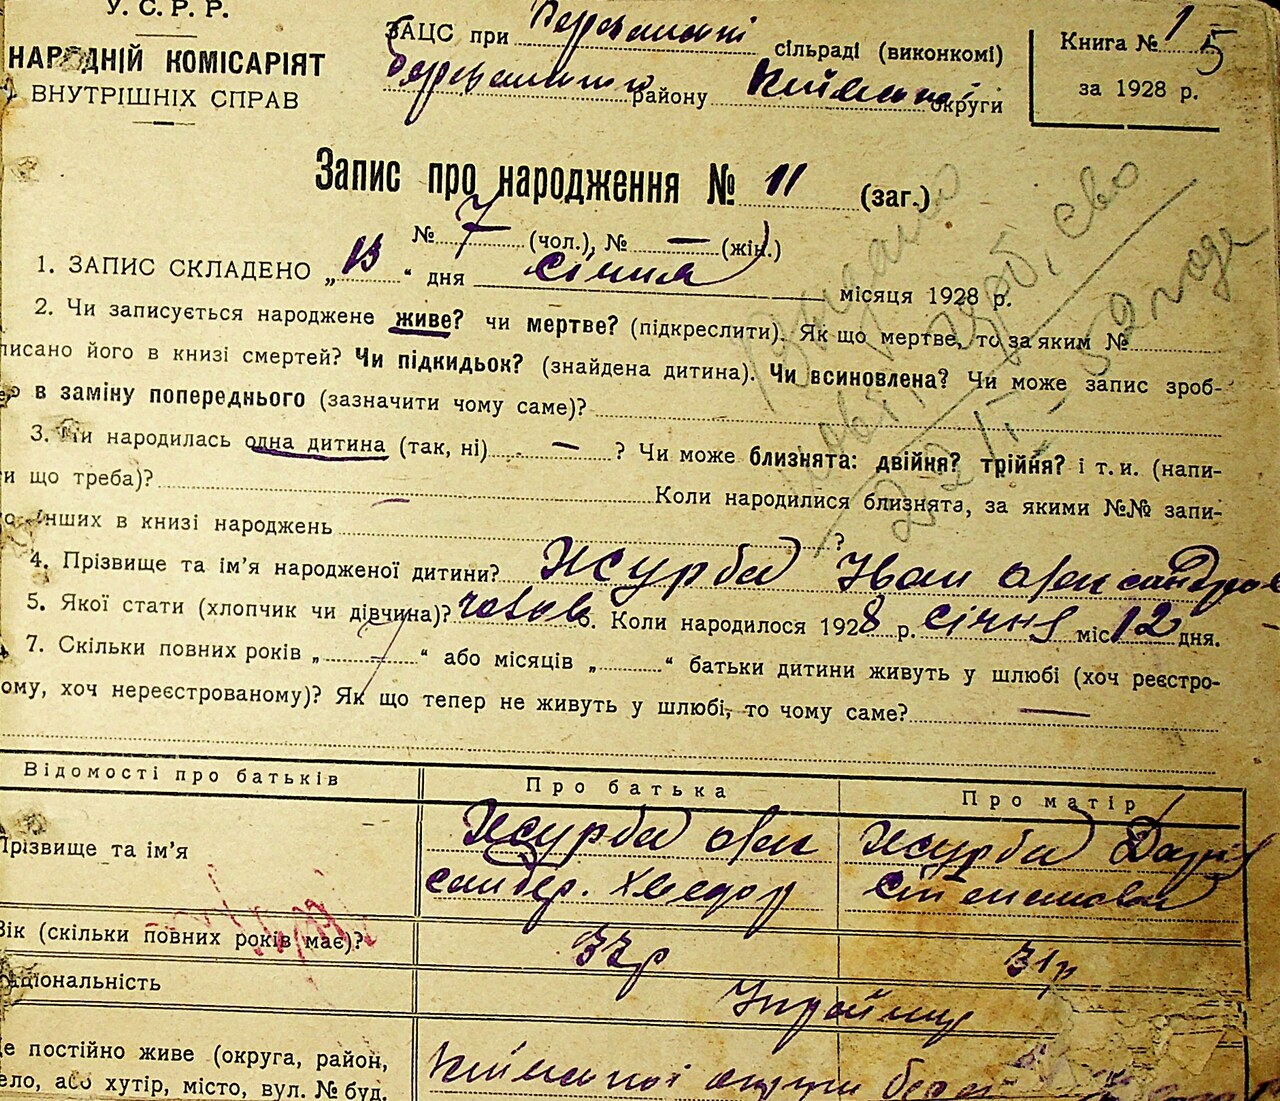 У. С. Р. Р.
НАРОДНІЙ КОМІСАРІЯТ
ВНУТРІШНІХ СПРАВ
ЗАЦС при сільраді (виконкомі)
району округи
Книга № 1 5
за 1928 р.
Запис про народження № 11 (заг.)
№ 7 (чол.), № — (жін.)
1. ЗАПИС СКЛАДЕНО „ 13 “ дня січня місяця 1928 р.
2. Чи записується народжене живе? чи мертве? (підкреслити). Як що мертве, то за яким №
писано його в книзі смертей? Чи підкидьок? (знайдена дитина). Чи всиновлена? Чи може запис зроб-
в заміну попереднього (зазначити чому саме)?
3. Чи народилась одна дитина (так, ні) — ? Чи може близнята: двійня? трійня? і т. и. (напи-
и що треба)? — Коли народилися близнята, за якими №№ запи-
інших в книзі народжень ?
4. Прізвище та ім’я народженої дитини? Журба Іван
5. Якої стати (хлопчик чи дівчина)? 6. Коли народилося 1928 р. січня міс. 12 дня.
7. Скільки повних років „ — “ або місяців „ “ батьки дитини живуть у шлюбі (хоч реєстро-
ому, хоч нереєстрованому)? Як що тепер не живуть у шлюбі, то чому саме? —
Видано
свід, сво
22 IV 52 года
Відомості про батьків Про батька Про матір
Прізвище та ім’я Журба Олек Журба Дарія
сандер. Хведор Степанова
Вік (скільки повних років має)? 37р 31р
аціональність Українці
е постійно живе (округа, район,
ело, або хутір, місто, вул. № буд.
округи